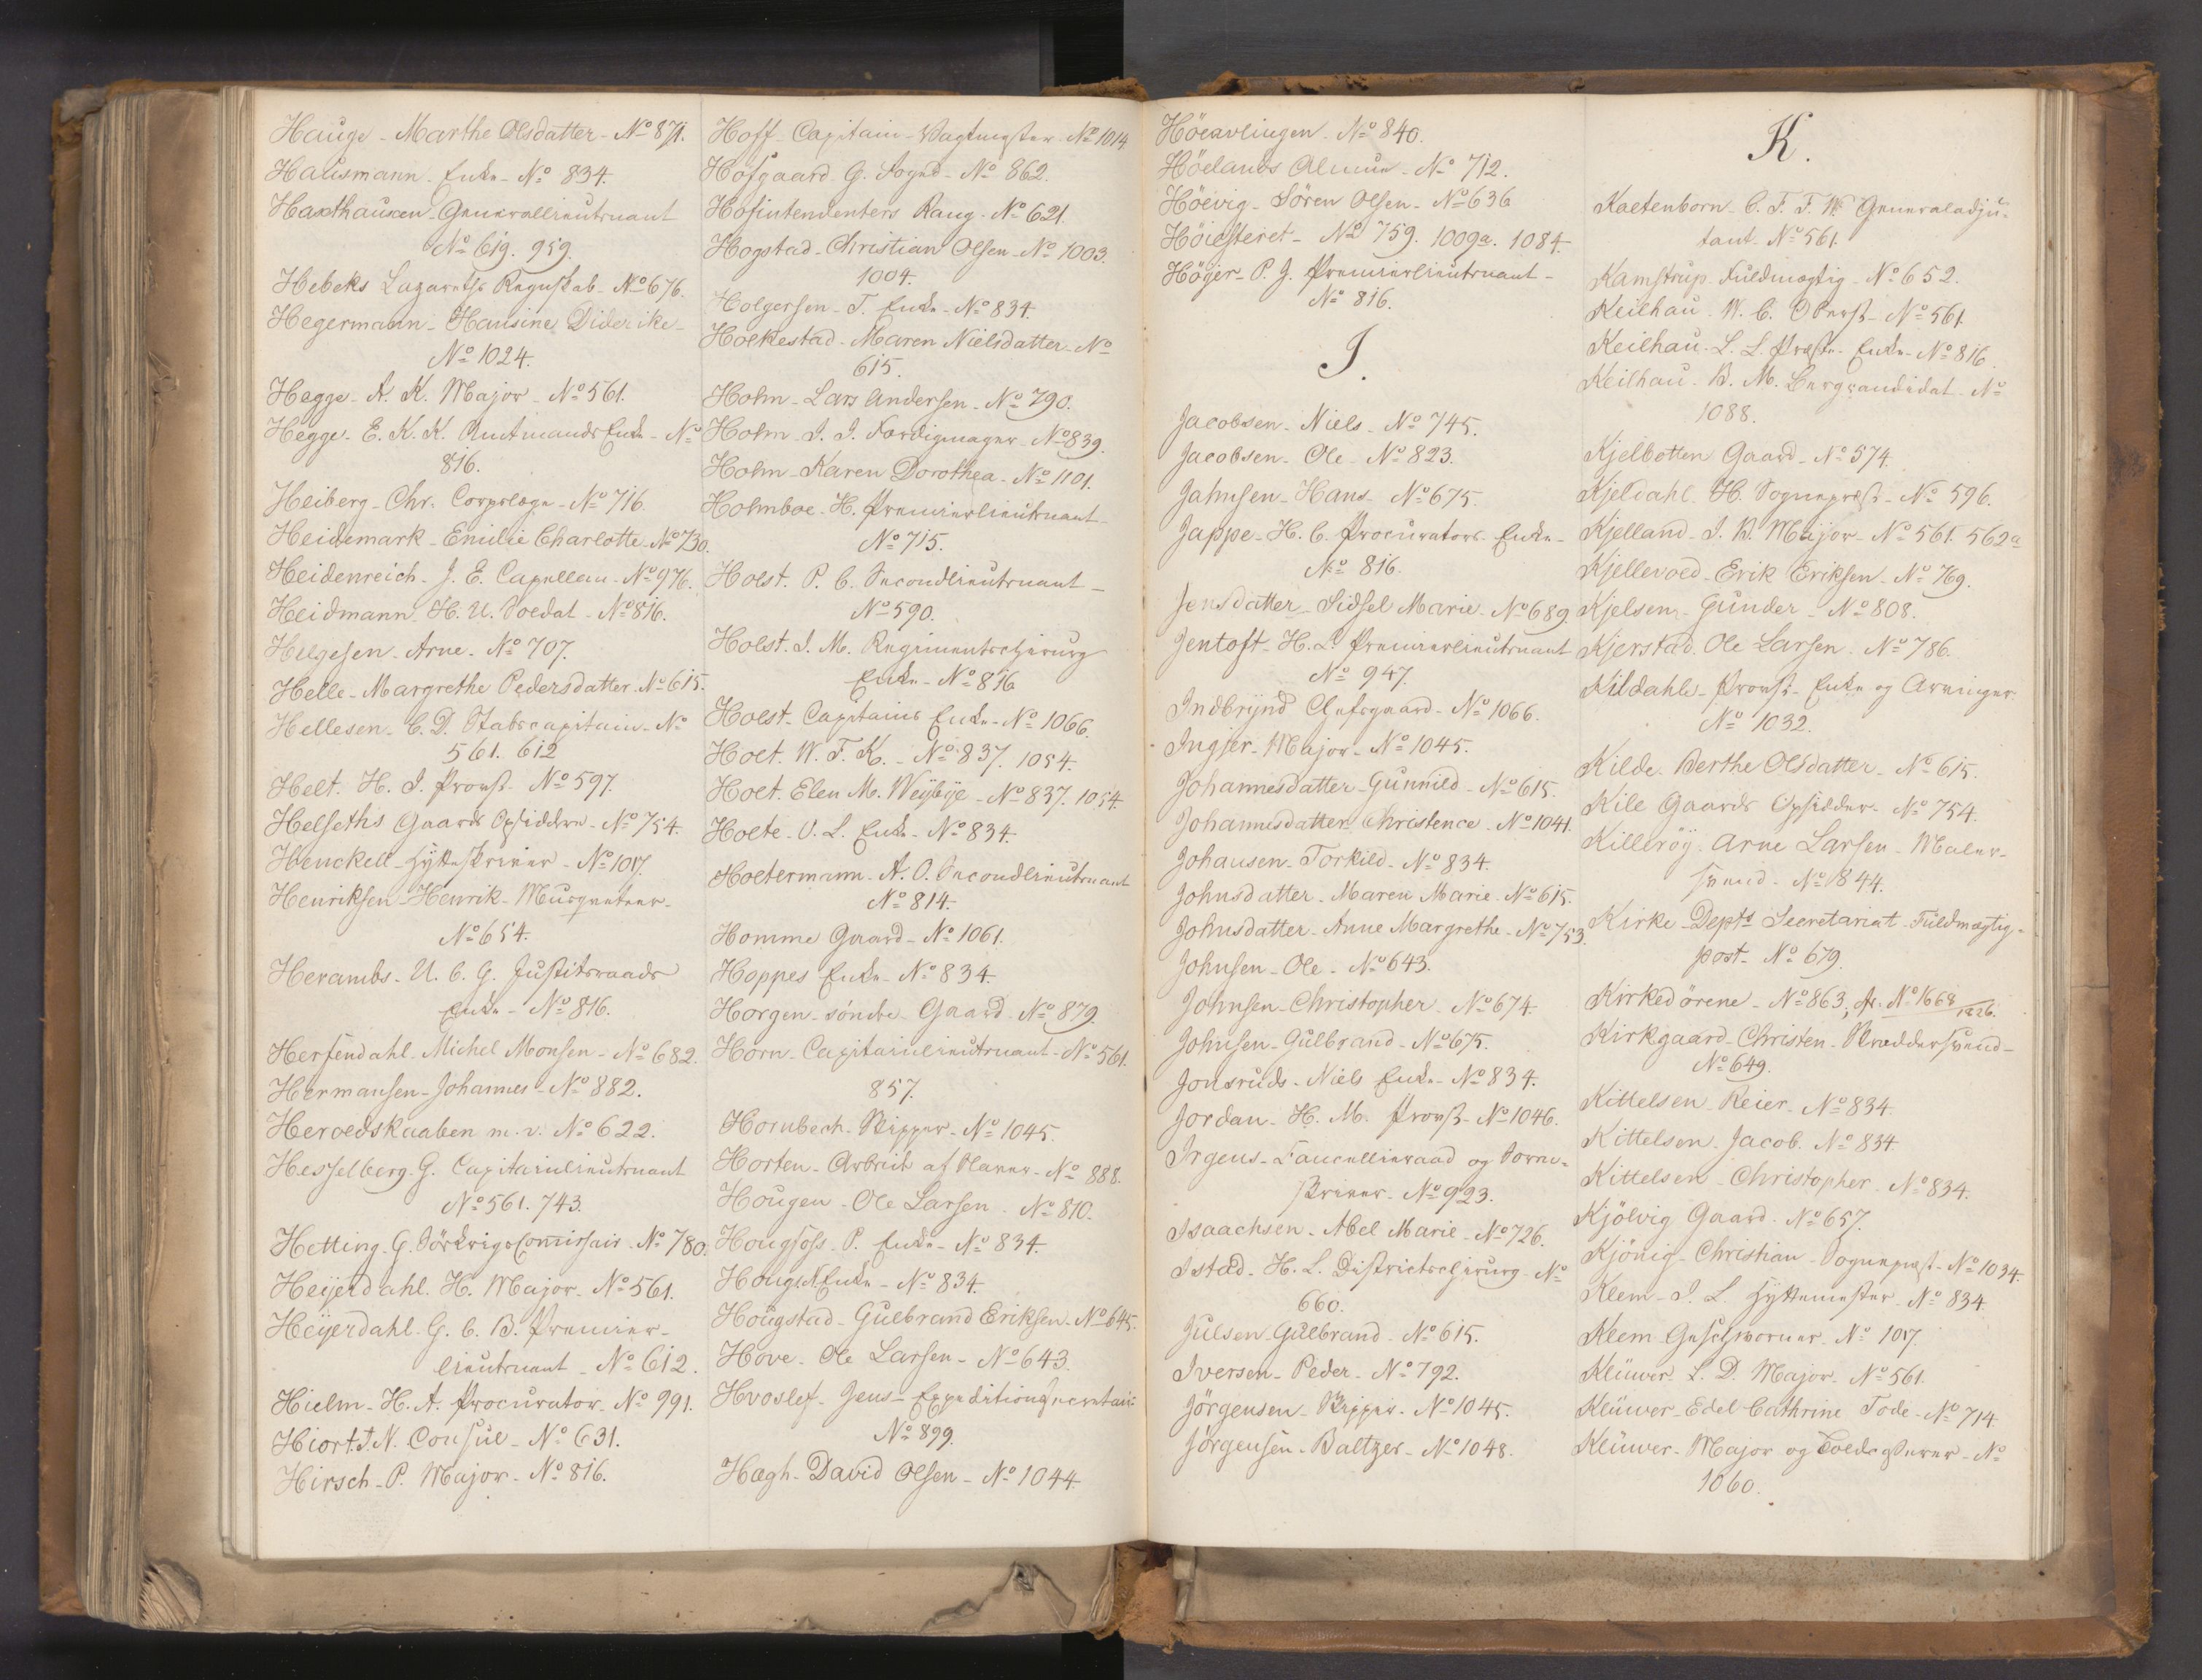 Hauge - Marthe Olsdatter - No 871.
Hausmann - Enke - No 834.
Haxthausen - Generallieutenant
No 619. 959.
Hebeks Lazareths Regnskab - No 676.
Hegermann - Hansine Diderike -
No 1024.
Hegge - A. K. Major - No 561.
Hegge - E. K. K. Amtmands Enke - No
816.
Heiberg - Chr. Corpslæge - No 716.
Heidemark - Emilie Charlotte - No 730.
Heidenreich - J. E. Capellan - No 976.
Heidmann. H. U. Soldat - No 816.
Helgesen - Arne - No 707.
Helle - Margrethe Pedersdatter No 615.
Hellesen - C. D. Stabscapitain - No
561. 612
Helt. H. J. Provst - No 597.
Helseths Gaards Opsiddere - No 754.
Henckell - Hytteskriver - No 1017.
Henriksen - Henrik - Musqueteer -
No 654.
Herambs - U. C. G. Justitsraads
Enke - No 816.
Hersendahl - Michel Monsen - No 682.
Hermansen - Johannes - No 882.
Heroedskaaben m. v. No 622.
Hesselberg. G. Capitainlieutnant
No 561. 743.
Hetting. G. Sökrigscomissair - No 780.
Heijerdahl. H. Major - No 561.
Heijerdahl - G. C. B. Premier -
lieutnant - No 612.
Hielm - H. A. Procurator - No 991.
Hiort. T. N. Consul - No 631.
Hirsch - P. Major - No 816.
Hoff - Capitain - Vagtmester - No 1014
Hofgaard - G. Foged - No 862.
Hofintendenters Rang - No 621.
Hogstad - Christian Olsen - No 1003.
1004.
Holgersen - T. Enke - No 834.
Holkestad - Maren Nielsdatter - No
615.
Holm - Lars Andersen - No 790.
Holm - J. J. Færdigmager - No 839.
Holm - Karen Dorothea - No 1101.
Holmboe - H. Premierlieutnant -
No 715.
Holst. P. C. Secondlieutnant -
No 590.
Holst. J. M. Regimentschirurg
Enke - No 816
Holst - Capitains Enke - No 1066.
Holt. W. F. K. - No 837. 1054.
Holt. Elen M. Weijbije - No 837. 1054.
Holte - O. L. Enke - No 834.
Holtermann - A. O. Secondlieutnant
No 814.
Homme Gaard - No 1061.
Hoppes Enke - No 834.
Horgen - söndre - Gaard - No 879.
Horn - Capitainlieutnant - No 561.
857.
Hornbech - Skipper - No 1045.
Horten - Arbeide af Slaver - No 888.
Hougen - Ole Larsen - No 810.
Hougfoss - P. Enke - No 834.
Hougs N. Enke - No 834.
Hougstad - Gulbrand Eriksen - No 645.
Hove - Ole Larsen - No 643.
Hvoslef - Jens - Expeditionssecretair -
No 899.
Hægh - David Olsen - No 1044.
Höeavlingen - No 840.
Höelands Almue - No 712.
Höevig - Sören Olsen - No 636
Höiesteret - No 759. 1009a. 1084.
Höjer - P. J. Premierlieutnant -
No 816.
J.
Jacobsen - Niels - No 745.
Jacobsen - Ole - No 823.
Jahnsen - Hans - No 675.
Jappe - H. C. Procurators Enke -
No 816.
Jensdatter - Sidsel Marie - No 689
Jentoft - H. L. Premierlieutnant
No 947.
Indbrÿnd Chefsgaard - No 1066.
Ingier - Major - No 1045.
Johannesdatter - Gunnild - No 615.
Johannesdatter Christence - No 1041.
Johansen - Torkild - No 834.
Johnsdatter - Maren Marie - No 615.
Johnsdatter - Anne Margrethe - No 753.
Johnsen - Ole - No 643.
Johnsen - Christopher - No 674.
Johnsen - Gulbrand - No 675.
Jonsruds - Niels Enke - No 834.
Jordan - H. M. Provst - No 1046.
Irgens - Cancelliraad og Soren-
skriver - No 923.
Isaachsen - Abel Marie - No 726.
Istad - H. L. Districtschirurg - No
660.
Julsen Gulbrand - No 615.
Iversen - Peder - No 792.
Jörgensen - Skipper - No 1045.
Jörgensen - Baltzer - No 1048.
K.
Kaltenborn - C. F. F. W. Generaladju-
tant - No 561.
Kamstrup - Fuldmægtig - No 652.
Keilhau. W. C. Oberst - No 561.
Keilhau - L. L. Præste - Enke - No 816.
Keilhau - B. M. Bergcandidat - No
1088.
Kjelbotten Gaard - No 574.
Kjeldahl. H. Sognepræst - No 596.
Kjelland - J. B. Major - No 561. 562a
Kjellevold - Erik Eriksen - No 769.
Kjelsen - Gunder - No 808.
Kjerstad. Ole Larsen. No 786.
Kildahls - Provst - Enke og Arvinger
No 1032.
Kilde - Berthe Olsdatter - No 615.
Kile Gaards Opsidder - No 754.
Killeröj - Arne Larsen - Maler-
svend - No 844.
Kirke - Depts Secretariat - Fuldmægtig -
post - No 679.
Kirkedörene - No 863; fr. No 1668/1826.
Kirkgaard - Christen - Skreddersvend -
No 649.
Kittelsen - Reier - No 834.
Kittelsen - Jacob. No 834.
Kittelsen - Christopher - No 834.
Kjölvig Gaard - No 657.
Kjönig - Christian - Sognepræst - No 1034.
Klem - J. L. Hyttemester - No 834.
Klem Geschworner - No 1017.
Klüwer - L. D. Major - No 561.
Klüwer - Edel Cathrine Tode - No 714
Klüwer - Major og - No
1060.